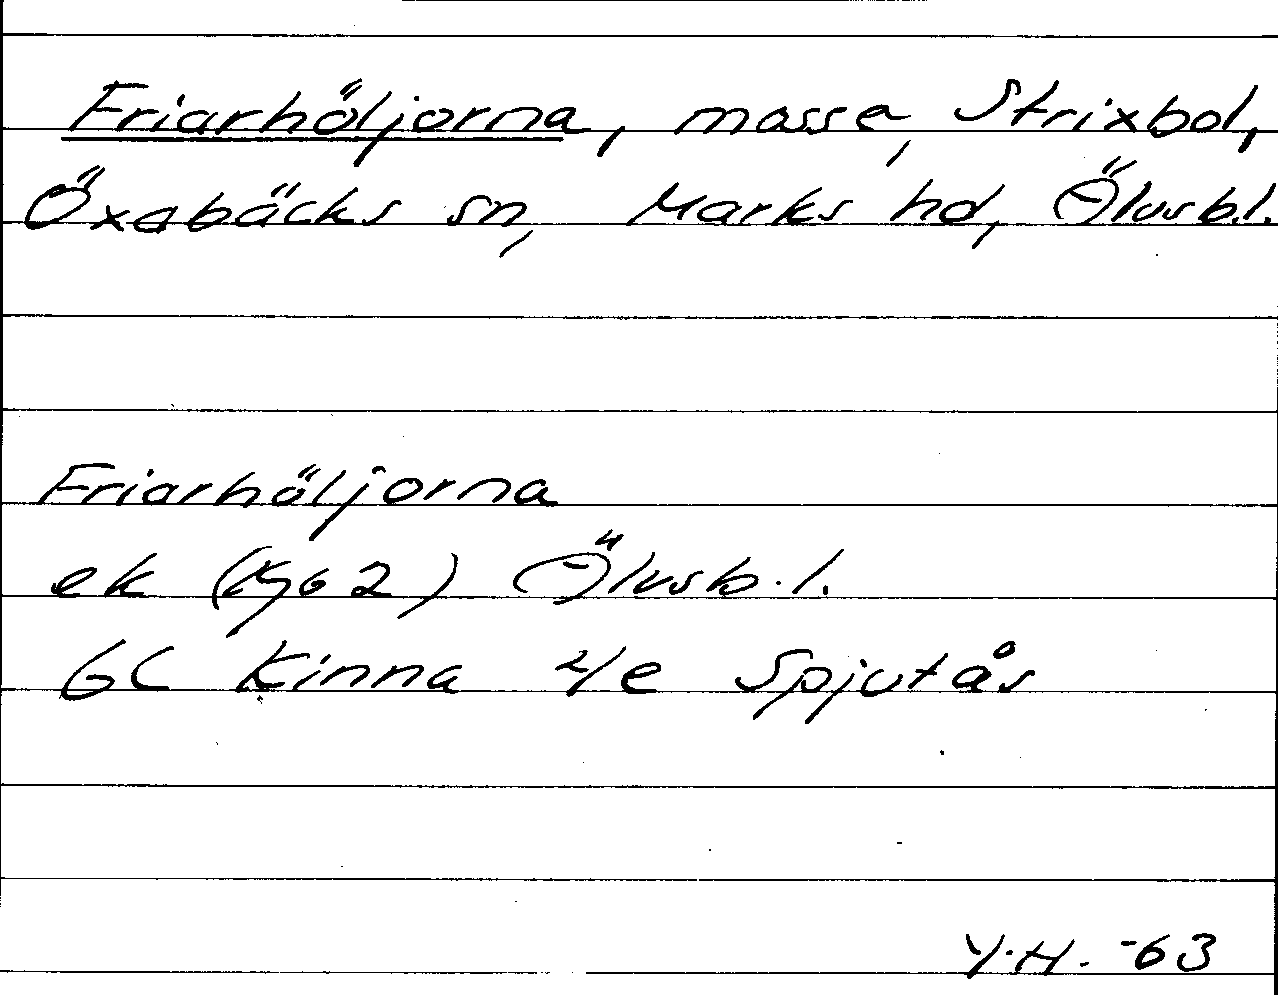 Friarhöljorna, masse, Strixbol,
Öxabäcks sn, Marks hd, Älvsb.l.
Friarhöljorna
ek (1962) Älvsb.l.
6C Kinna 4/e Spjutås
Y.H. -63